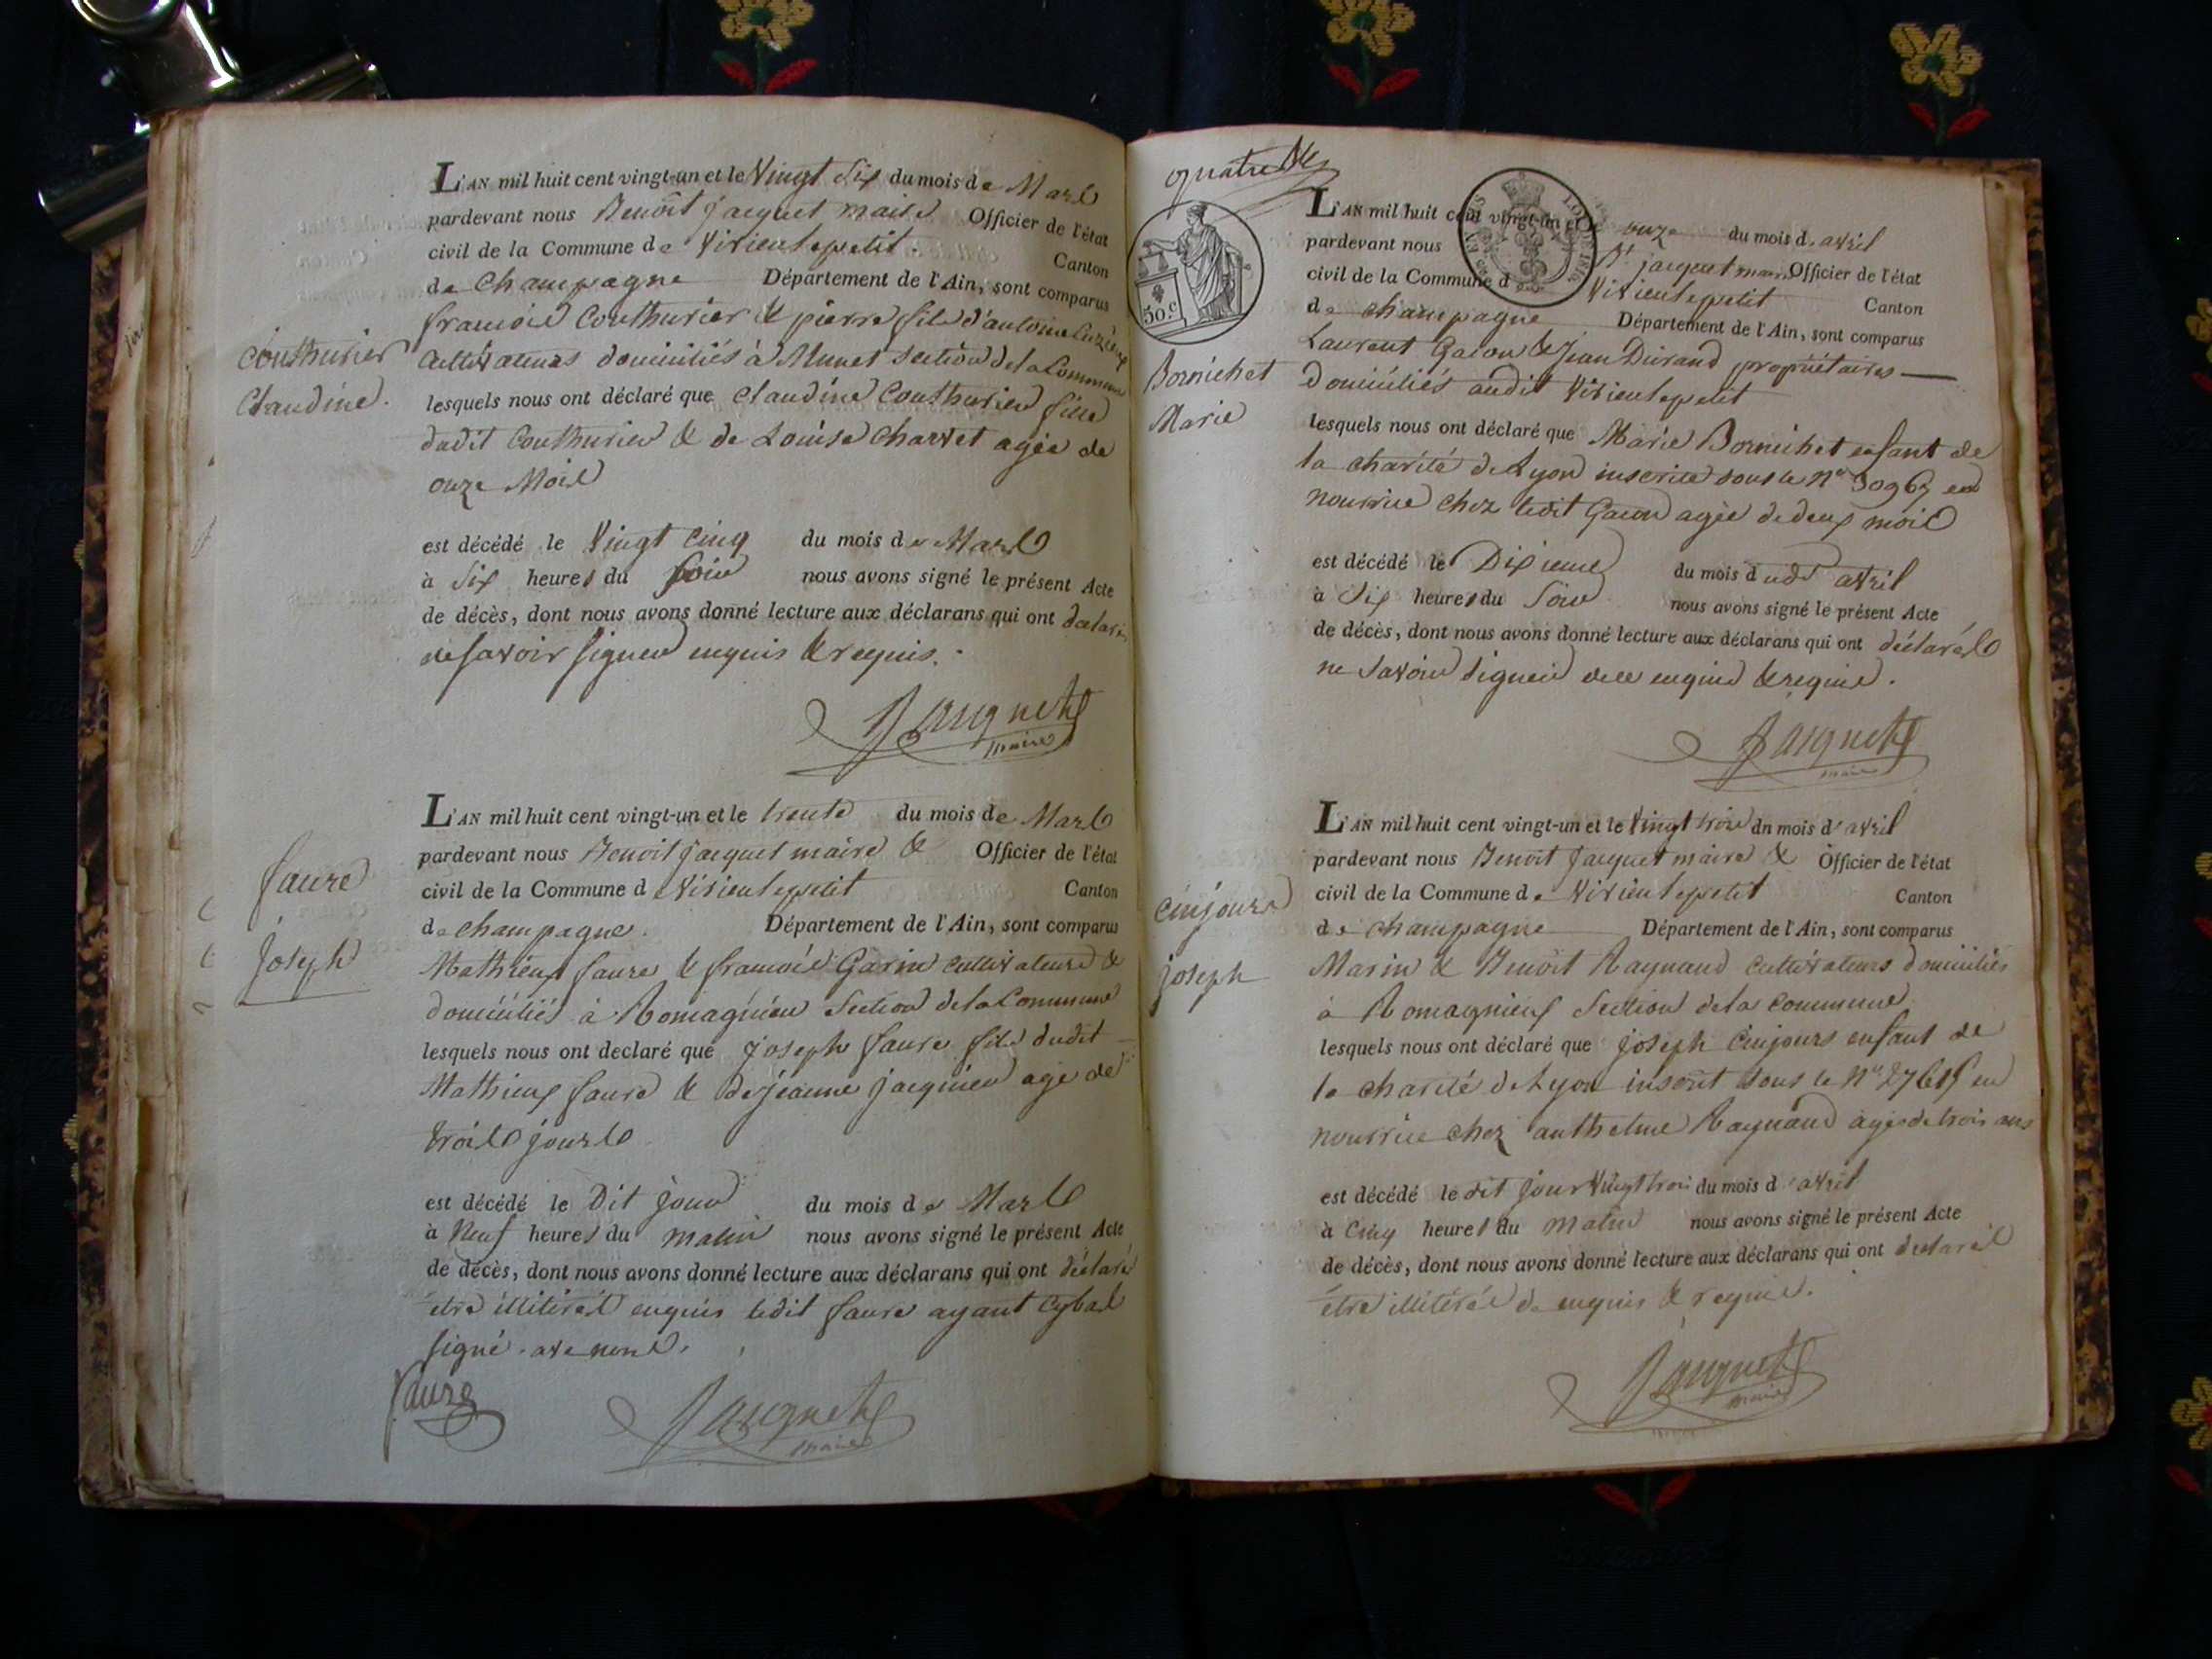 L'AN mil huit cent vingt-un et le Vingt Six du mois de Mars
pardevant nous Benoît jacquet maire Officier de l'état
civil de la Commune de Virieulepetit Canton
de Champagne Département de l'Ain, sont comparus
francois Couthurier & pierre fils d'antoine
Couthurier
Claudine.
Cultivateurs domiciliés à Munet Section de la Commune
lesquels nous ont déclaré que Claudine Couthurier fille
dudit Couthurier & de Louise Charvet agée de
onze Mois
est décédé le Vingt Cinq du mois de Mars
à Six heures du Soir nous avons signé le présent Acte
de décès, dont nous avons donné lecture aux déclarans qui ont
ne savoir signer enquis & requis.
Jacquet
maire
L'AN mil huit cent vingt-un et le trente du mois de Mars
pardevant nous Benoit jacquet maire & Officier de l'état
civil de la Commune d Virieulepetit Canton
de Champagne. Département de l'Ain, sont comparus
faure
joseph
Mathieux faure & francois Garin cultivateurs &
domiciliés à Romagnieu Section de la Commune
lesquels nous ont declaré que joseph faure fils dudit
Mathieux faure & de jeanne jacquier age de
trois jours
est décédé le Dit jour du mois de Mars
à Neuf heures du matin nous avons signé le présent Acte
de décès, dont nous avons donné lecture aux déclarans qui ont déclaré
etre illitéres enquis ledit faure ayant
signé. avec nous.
faure
Jacquet
maire
quatre
50.c
L'AN mil huit cent vingt-un et le onze du mois d. avril
pardevant nous Bt jacquet maire Officier de l'état
civil de la Commune d Virieulepetit Canton
de Champagne Département de l'Ain, sont comparus
Laurent Gacon & Jean Durand propriétaires
Bornichet
Marie
domiciliés audit Virieulepetit
lesquels nous ont déclaré que Marie Bornichet enfant de
la charité de Lyon inscrite sous le No 30963 en
nourrice chez ledit Gacon agée de deux mois
est décédé le Dixieme du mois dudt avril
à Six heures du Soir nous avons signé le présent Acte
de décès, dont nous avons donné lecture aux déclarans qui ont déclarés
ne Savoir signer de ce enquis & requis.
Jacquet
maire
L'AN mil huit cent vingt-un et le Vingt trois dn mois d'avril
pardevant nous Benoît Jacquet maire & Officier de l'état
civil de la Commune de Virieulepetit Canton
de Champagne Département de l'Ain, sont comparus
Cinjours
joseph
Marin & Benoit Raynaud Cultivateurs domiciliés
à Romagnieux Section de la commune
lesquels nous ont déclaré que joseph Cinjours enfant de
la charité de Lyon inscrit sous le No en
nourrice chez anthelme Raynaud agé de trois ans
est décédé le dit jour Vingt trois du mois d'avril
à Cinq heures du matin nous avons signé le présent Acte
de décès, dont nous avons donné lecture aux déclarans qui ont declarés
être illitérés de enquis & requis.
Jacquet
maire